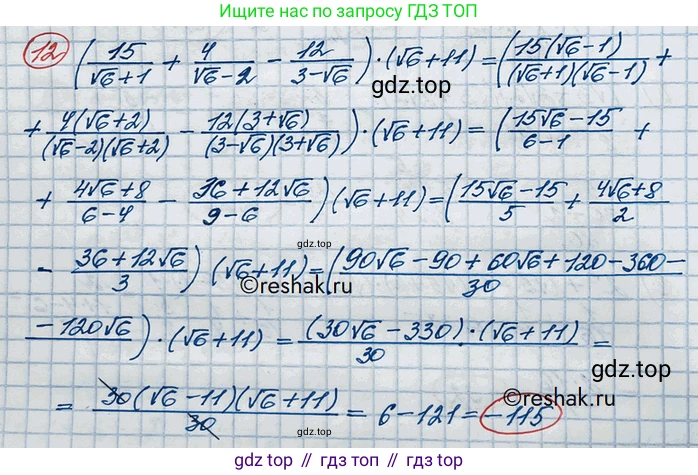 Ищите нас по запросу ГДЗ ТОП
12 (15/(√6+1) + 4/(√6-2) - 12/(3-√6)) · (√6+11) = (15(√6-1)/((√6+1)(√6-1)) +
gdz.top
+ 4(√6+2)/((√6-2)(√6+2)) - 12(3+√6)/((3-√6)(3+√6))) · (√6+11) = ((15√6-15)/(6-1) +
+ (4√6+8)/(6-4) - (36+12√6)/(9-6)) (√6+11) = ((15√6-15)/5 + (4√6+8)/2
gdz.top
- (36+12√6)/3) (√6+11) = (90√6-90+60√6+120-360-/30
©reshak.ru
-120√6) · (√6+11) = (30√6-330)·(√6+11)/30 =
= 30(√6-11)(√6+11)/30 = 6-121 = -115
©reshak.ru
gdz.top // gdz.top // gdz.top